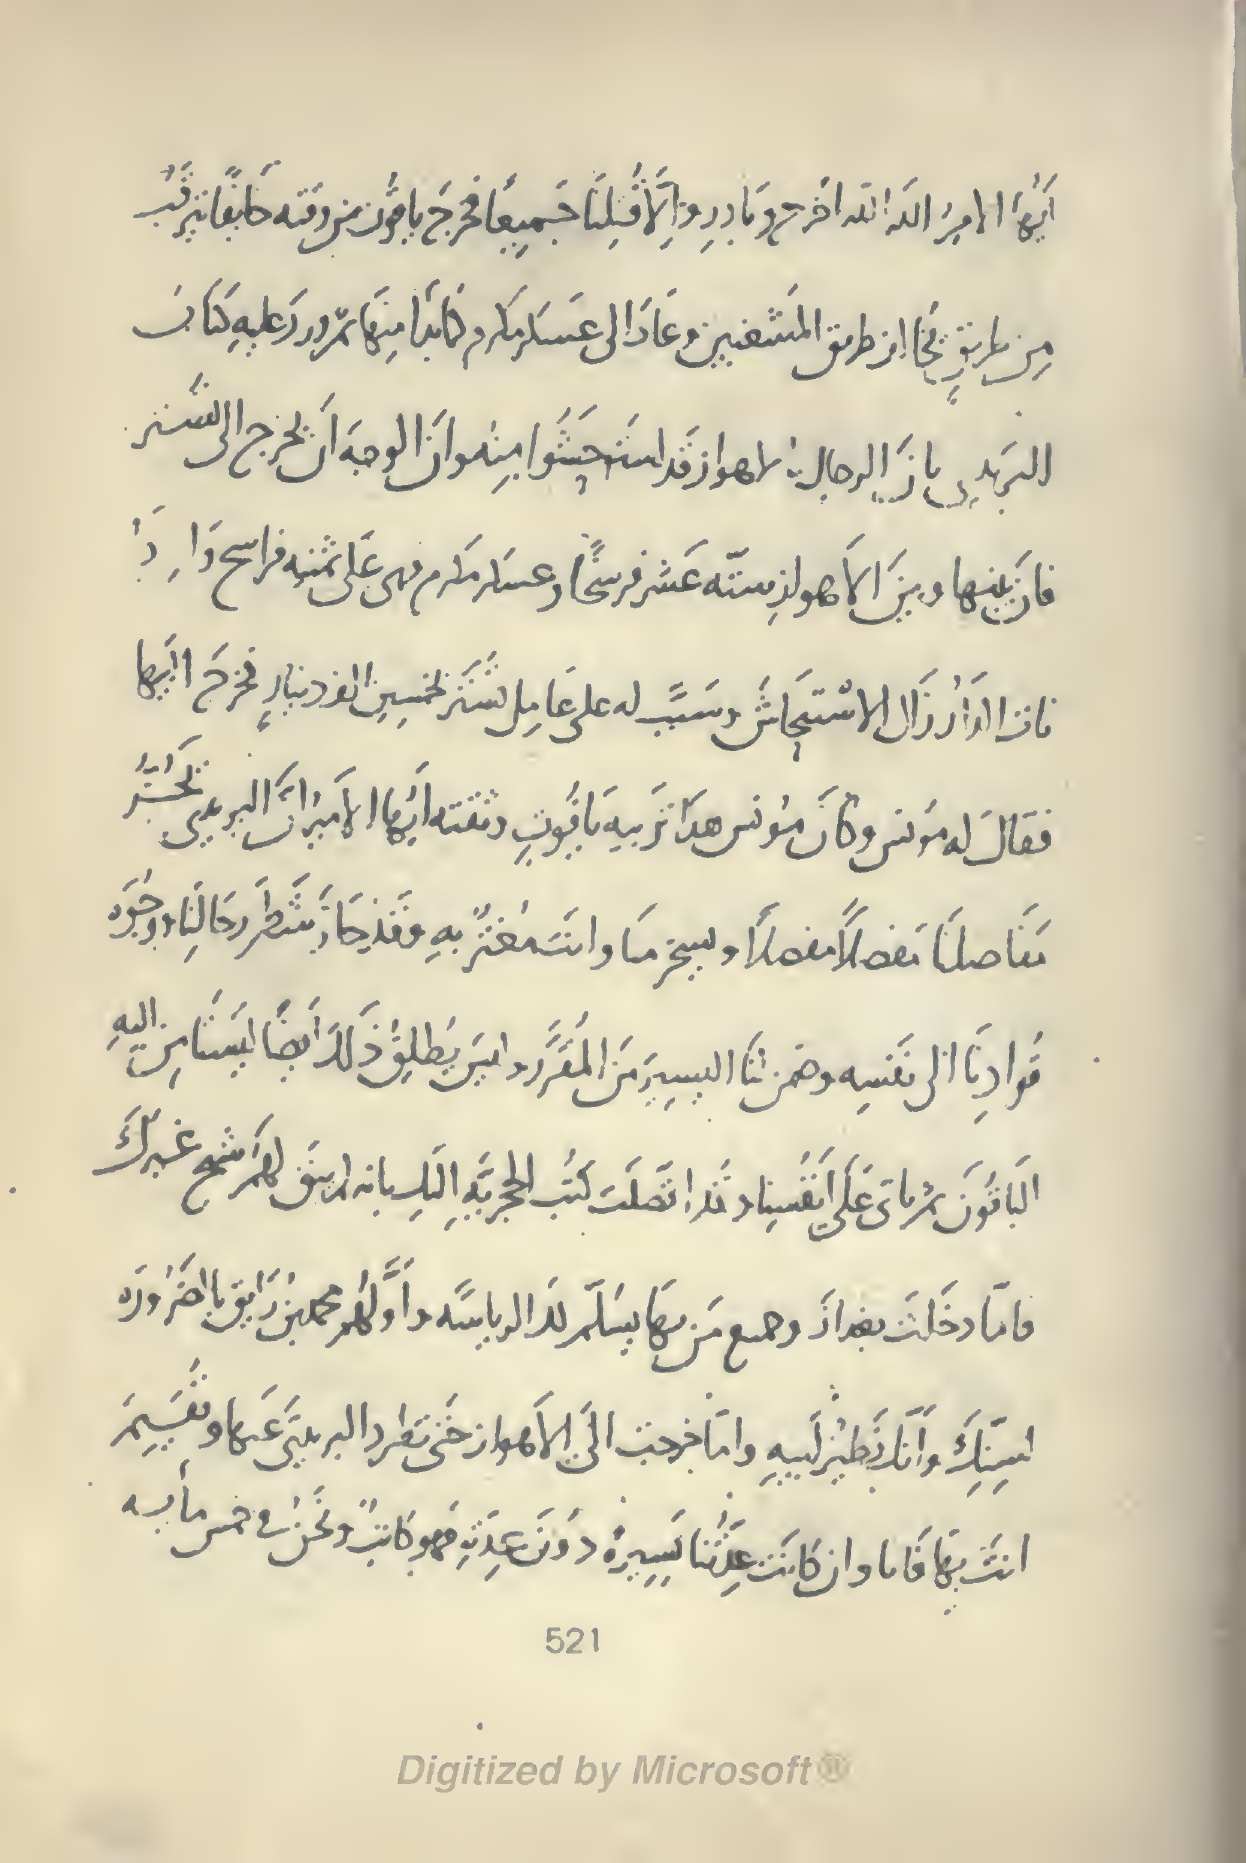 أيّها الامير الله الله اخرج وبادر والّا قُتِلنا جميعًا فخرج ياقوت من وقته خائفًا يترقّب
من طريقٍ يخالف طريق المتشغبين وعاد الى عسكر مكرم كاتبًا منها ثمّ ورد عليه كتاب
البريدي بانّ الرجال بالاهواز قد استوحشوا منه وانّ الوجه أن يخرج الى تستر
فانّ بينها وبين الأهواز ستّه عشر فرسخًا وعسكر مكرم فهى على ثمنيه فراسخ
الدار زال الاستيحاش وسبّب له على عامل تستر بخمسين الف دينارٍ فخرج اليها
فقال له مونس وكان مونس هذا تربيه ياقوتٍ وثقته أيّها الأمير انّ البريدي يحزّ
مفاصلنا مفصلًا مفصلًا ويسخر منا وانت مغترٌّ به وقد حاز شطر رجالنا ووجوه
قُوادنا الى نفسه وضمن لنا اليسير من المقرّر وليس يُطلق ذلك أيضًا ليستامن اليه
الباقون ثم ياتى على أنفُسنا وقد اتّصلت كتُب الحجريّه اليك بانه لم يبق لهم شيخ غيرك
فامّا دخلت بغداذ وجميع من بها يسلّم لك الرياسه وأوّلهم محمد بن رايق بالضروره
لسنّك وأنّك نظير لبيه وامّا خرجت الى الأهواز حتى تطرد البريدى عنها وتُقيم
انت بها فانا وان كانت عِدّتنا يسيرهً دون عدته فهو كاتبٌ ونحن فى خمس مأيه
521
Digitized by Microsoft ®